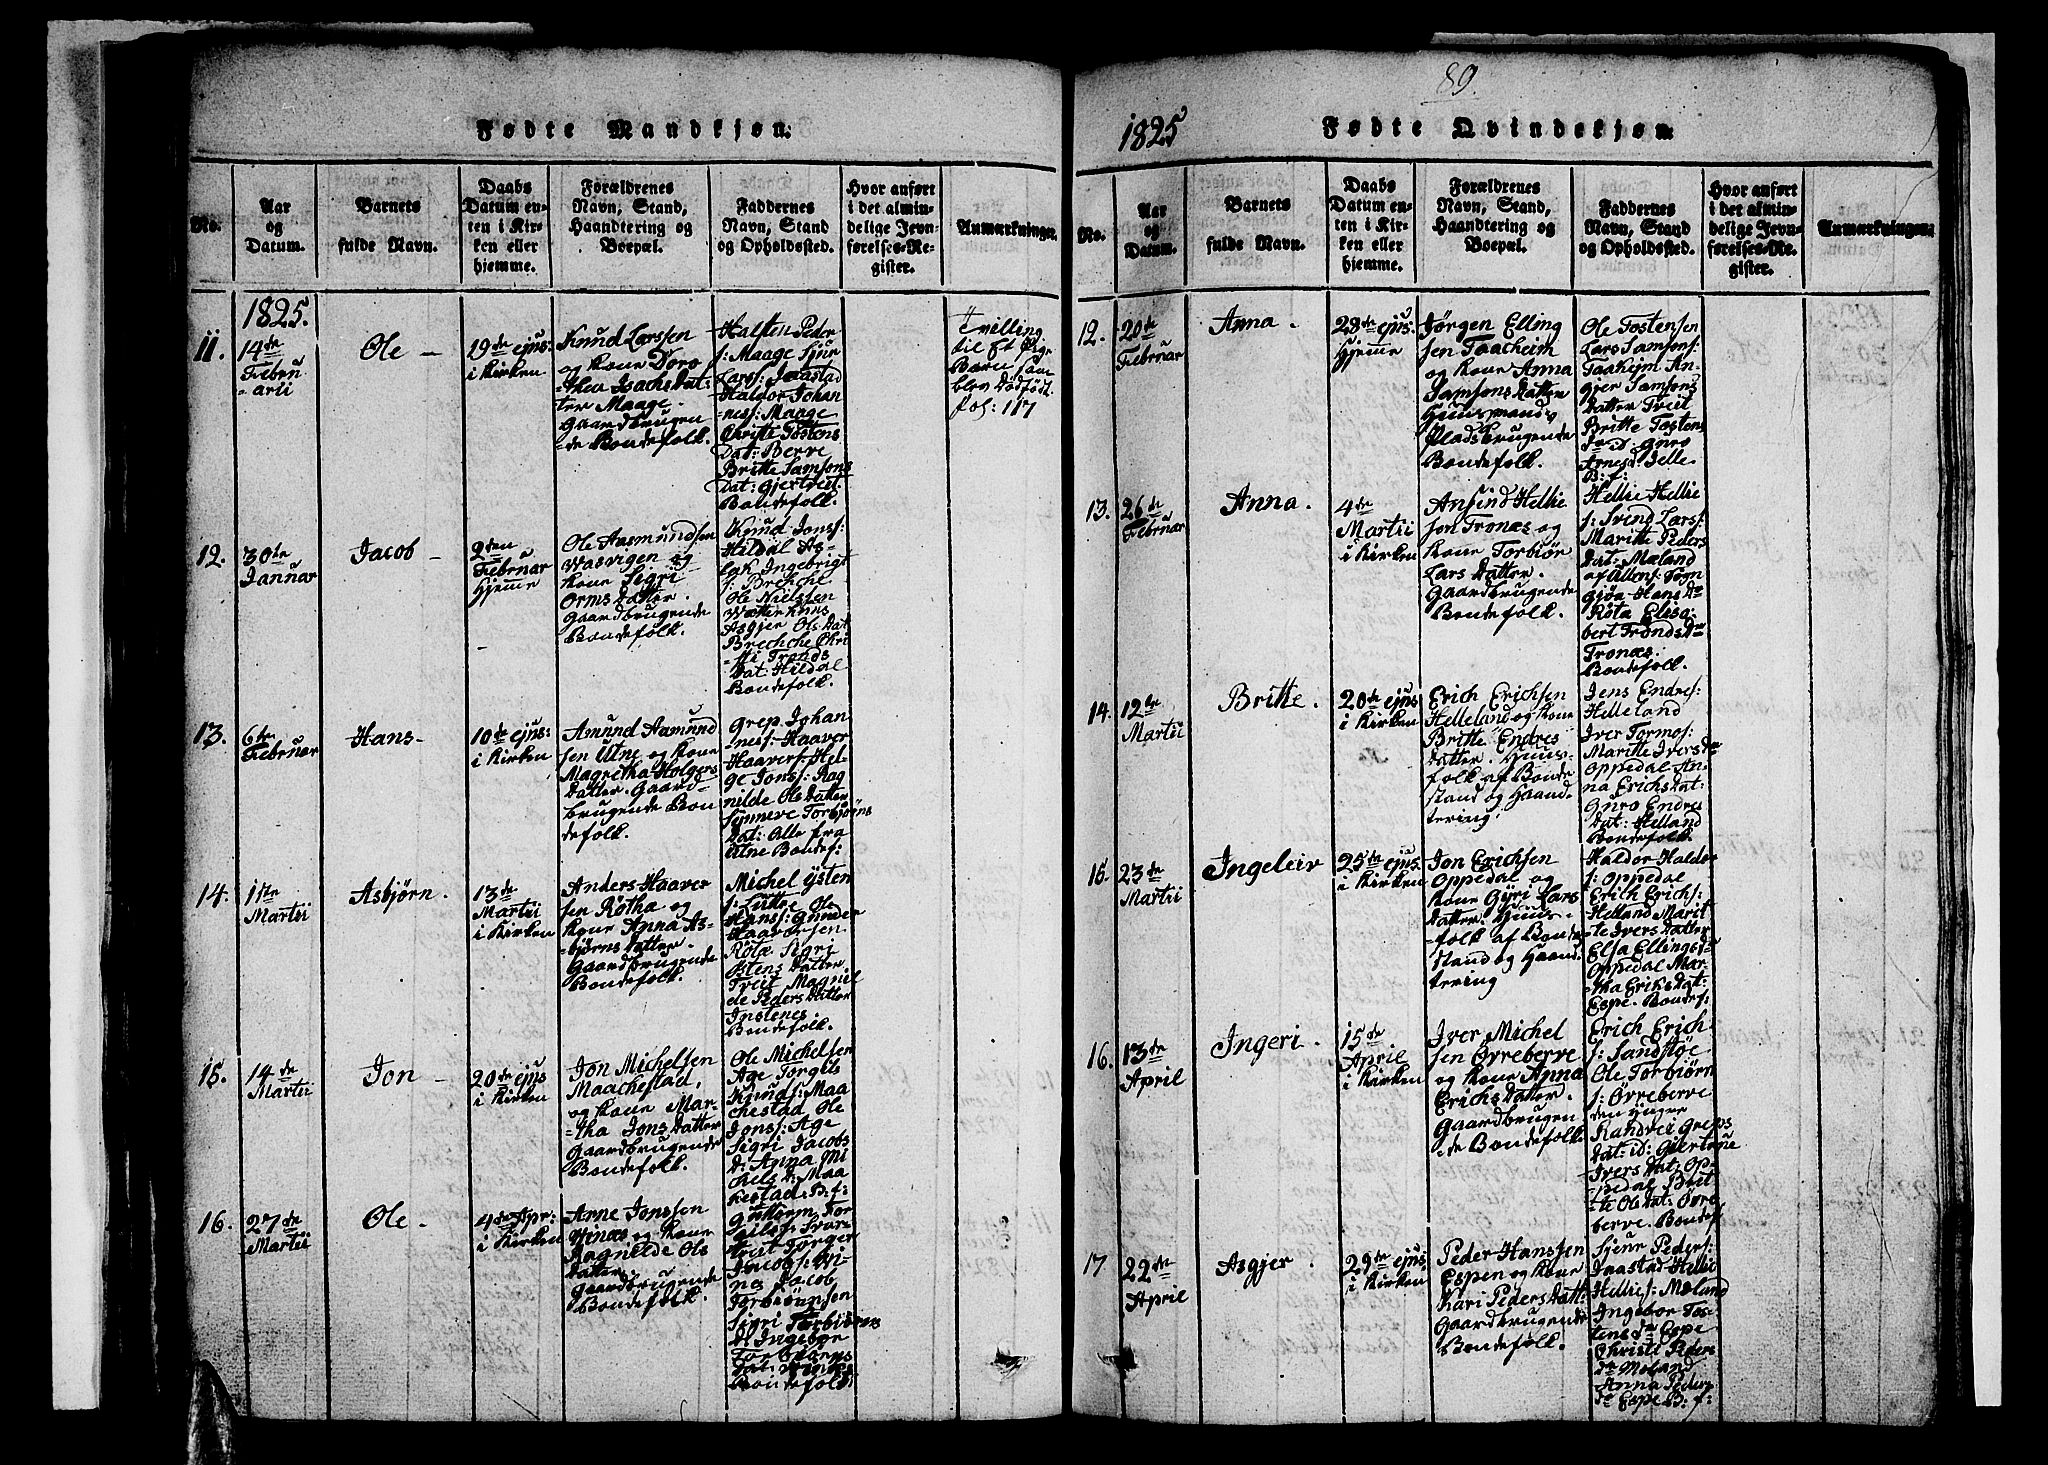 89.
Fødte Mandkjøn.
No.
Aar
og
Datum.
Barnets
fulde Navn.
Daabs
Datum en-
ten i Kir-
ken eller
hjemme.
Forældrenes
Navn, Stand,
Haandtering og
Boepæl.
Faddernes
Navn, Stand
og Opholdssted.
Hvor anført
i det almin-
delige Jevn-
førelses-Re-
gister.
Anmærkninger.
1825.
11.
14de
Febru
arii
Ole
19de ejus:
i Kirken
Knud Larssen
og Kone Doro
thea Isachs Dat-
ter Maage.
Gaardbrugen
de Bondefolk.
Halsten Peder
s: Maage Sjur
Lars: Jaastad
Haldor Johan
nes: Maage
Christe Tostens
Dat: Berre
Britte Samsons
Dat: Gjertveit.
Bondefolk.
Tvilling
til Et Pige
Barn som
blev Dødfødt.
fol: 117
12.
30te
Januar
Jacob
2den
Februar
Hjemme
Ole Aasmundsen
Waavigen og
Kone Sigri
Orms Datter.
Gaardbrugende
Bondefolk.
Knud Jons:
Hildal As-
lak Ingebrigt
s: Brekche
Ole Nielsten
Asgjer Ols Dat
Brechche Chri
sti Tronds
Dat: Hildal
Bondefolk.
13.
6te
Februar
Hans
10de ejus:
i Kirken
Amund Aamund
sen Utne og Kone
Magretha Holgers
Datter. Gaard-
brugende Bon
defolk.
Grep Johan
nes: Haaver
Haavers: Hel-
ge Jons: Rag
nilde Ols Datter
Synneve Torbjørns
Dat: Alle fra
Utne Bondef:
14.
11te
Martii
Asbjørn
13de
Martii
i Kirken
Anders Haaver
sen Rötha og
Kone Anna As-
bjørns Datter.
Gaardbrugende
Bondefolk.
Michel Ysten
s: Lutte Ole
Hans: Gunder
Haaversen
Röte Sigri
Ystens Datter
Tveit Magnil
de Peders Datter
Instenes.
Bondefolk.
15.
14de
Martii
Jon
20de ejus
i Kirken
Jon Michelsen
Maachestad,
og Kone Mar-
tha Jons Datter
Gaardbrugende
Bondefolk.
Ole Michelsen
Age Torgils
Knuds: Maa
chestad Ole
Jons: Age
Sigri Jacobs
D: Anna Mi
chels D: Maa
kestad. B. f:
16.
27de
Martii
Ole
4de Apr:
i Kirken
Arne Jonssen
Winæs og Kone
Ragnilde Ols
Datter.
Gaardbrugende
Bondefolk.
Guttorm Tor
Jacobs: Wi
næs Jacob
Torbiörnsen
Sigri Torbiörns
D: Ingebor
Torbiörns
Bondefolk
1825
Fødte Qvindekjøn.
No.
Aar
og
Datum.
Barnets
fulde Navn.
Daabs
Datum en-
ten i Kir-
ken eller
hjemme.
Forældrenes
Navn, Stand,
Haandtering og
Boepæl.
Faddernes
Navn, Stand
og Opholdsted.
Hvor anført
i det almin-
delige Jevn-
førelses-Re-
gister.
Anmærkninger.
12.
20de
Februar
Anna.
28de ejus:
Hjemme
Jørgen Elling
sen Taacheim
og Kone Anna
Samsons Datter
Huusmands
Pladsbrugende
Bondefolk.
Ole Tostensen
Lars Samsons:
Taaheim An-
gjer Samsons
Datter Tveit
Britte Tostens
D. id: Guro
Arnes D. Jelle
B: f:
13.
26de
Februar
Anna.
4de
Martii
i Kirken
Ansind Hellie
sen Tronæs og
Kone Torbiør
Lars Datter.
Gaardbrugende
Bondefolk.
Hellie Hellie
s: Svend Lars:
Maritte Peders
Dat: Mæland
gjøa Hans D
Röta Elisa
bert Tronds Dr
Tronæs.
Bondefolk.
14.
12te
Martii
Britte.
20de ejus
i Kirken
Erich Erichsen
Helleland og Kone
Britte Endres
Datter. Huus-
folk af Bonde
stand og Haand
tering.
Jens Endres:
Helleland
Iver Tormos:
Maritte Ivers Dr
Oppedal An-
na Erichs Dat:
Guro Endres
Dat: Helland
Bondefolk.
15.
23de
Martii
Ingeleiv
25de ejus.
i Kirken
Jon Erichsen
Oppedal og
Kone Gyri Lars
Datter. Huus-
folk af Bonde
stand og Haand
tering
Haldor Haldor
s: Oppedal
Erich Erichs:
Helland Marit
te Ivers Datter
Elsa Ellings Dr
Oppedal Mar-
tha Eriks Dat:
Espe. Bondef:
16.
13de
April
Ingeri.
15de
April
i Kirken
Iver Michel
sen Ovreberve
og Kone Anna
Erichs Datter.
Gaardbrugen
de Bondefolk.
Erich Erich
s: Sandstøe
Ole Torbiørn
s: Övreberve
den Yngre
Randvei Greps
Dat: id: Giertrue
Ivers Dat: Op-
pedal Brit
te Ols Dat: Ovre
berve. Bondef:
17
22de
April
Asgjer.
29de ejus:
i Kirken
Peder Hanssen
Espen og Kone
Kari Peders Datt:
Gaardbrugende
Bondefolk.
Sjeur Peders:
Jaastad Hellie
Hellies: Mæland
Ingebor Tos-
tens Dr Espe
Christi Peders
Dr Mæland
Anna Peders
Dr Espe B. f: